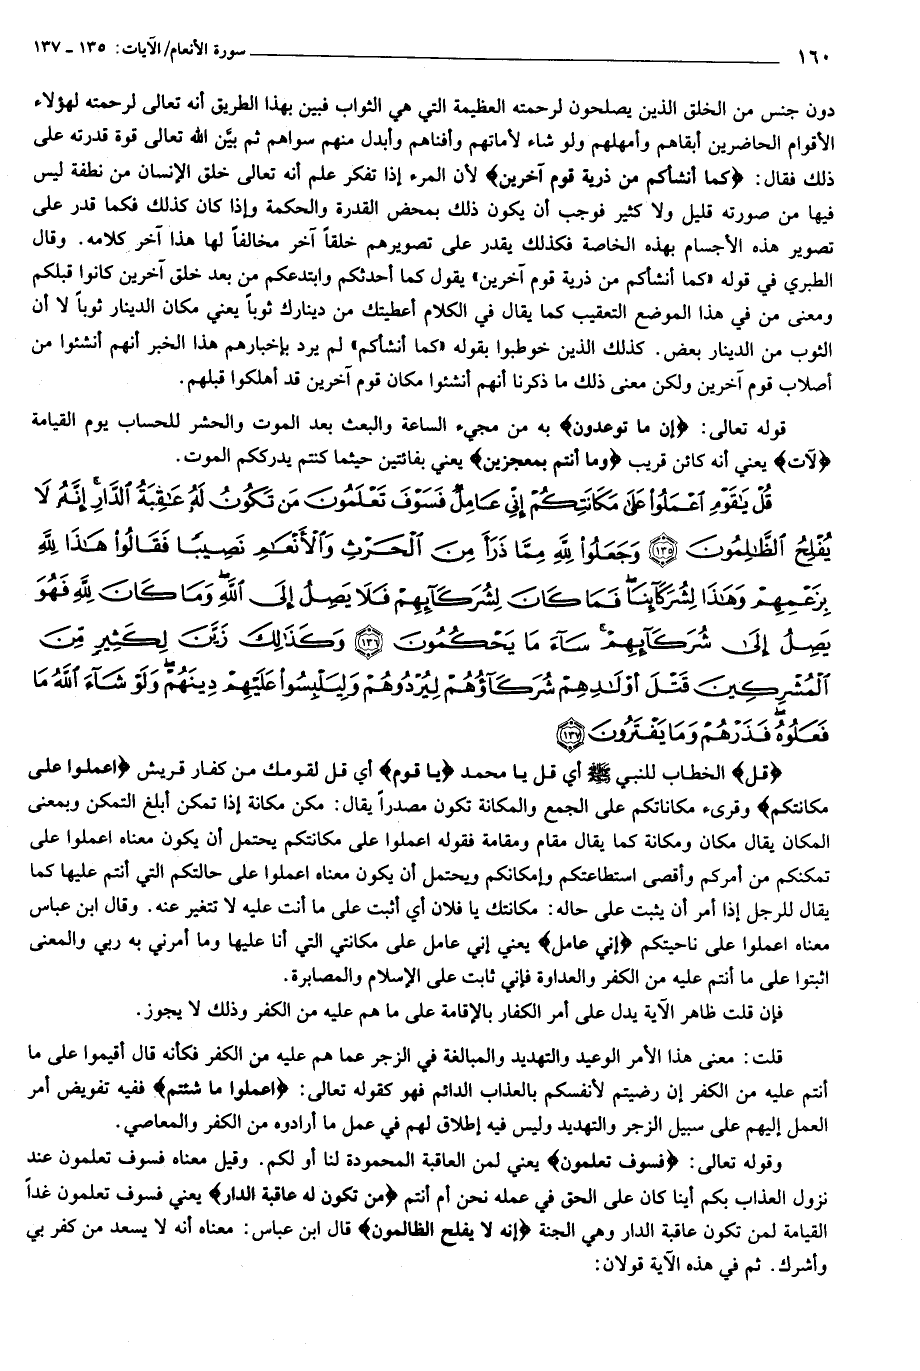 ١٦٠ سورة الأنعام/الآيات: ١٣٥ - ١٣٧
دون جنس من الخلق الذين يصلحون لرحمته العظيمة التي هي الثواب فبين بهذا الطريق أنه تعالى لرحمته لهؤلاء
الأقوام الحاضرين أبقاهم وأمهلهم ولو شاء لأماتهم وأفناهم وأبدل منهم سواهم ثم بيَّن الله تعالى قوة قدرته على
ذلك فقال: ﴿كما أنشأكم من ذرية قوم آخرين﴾ لأن المرء إذا تفكر علم أنه تعالى خلق الإنسان من نطفة ليس
فيها من صورته قليل ولا كثير فوجب أن يكون ذلك بمحض القدرة والحكمة وإذا كان كذلك فكما قدر على
تصوير هذه الأجسام بهذه الخاصة فكذلك يقدر على تصويرهم خلقاً آخر مخالفاً لها هذا آخر كلامه. وقال
الطبري في قوله «كما أنشأكم من ذرية قوم آخرين» يقول كما أحدثكم وابتدعكم من بعد خلق آخرين كانوا قبلكم
ومعنى من في هذا الموضع التعقيب كما يقال في الكلام أعطيتك من دينارك ثوباً يعني مكان الدينار ثوباً لا أن
الثوب من الدينار بعض. كذلك الذين خوطبوا بقوله «كما أنشأكم» لم يرد بإخبارهم هذا الخبر أنهم أنشئوا من
أصلاب قوم آخرين ولكن معنى ذلك ما ذكرنا أنهم أنشئوا مكان قوم آخرين قد أهلكوا قبلهم.
قوله تعالى: ﴿إن ما توعدون﴾ به من مجيء الساعة والبعث بعد الموت والحشر للحساب يوم القيامة
﴿لآت﴾ يعني أنه كائن قريب ﴿وما أنتم بمعجزين﴾ يعني بفائتين حيثما كنتم يدرككم الموت.
قُلْ يَٰقَوْمِ ٱعْمَلُوا۟ عَلَىٰ مَكَانَتِكُمْ إِنِّى عَامِلٌ فَسَوْفَ تَعْلَمُونَ مَن تَكُونُ لَهُۥ عَٰقِبَةُ ٱلدَّارِ إِنَّهُۥ لَا
يُفْلِحُ ٱلظَّٰلِمُونَ ﴿١٣٥﴾ وَجَعَلُوا۟ لِلَّهِ مِمَّا ذَرَأَ مِنَ ٱلْحَرْثِ وَٱلْأَنْعَٰمِ نَصِيبًا فَقَالُوا۟ هَٰذَا لِلَّهِ
بِزَعْمِهِمْ وَهَٰذَا لِشُرَكَآئِنَا فَمَا كَانَ لِشُرَكَآئِهِمْ فَلَا يَصِلُ إِلَى ٱللَّهِ وَمَا كَانَ لِلَّهِ فَهُوَ
يَصِلُ إِلَىٰ شُرَكَآئِهِمْ سَآءَ مَا يَحْكُمُونَ ﴿١٣٦﴾ وَكَذَٰلِكَ زَيَّنَ لِكَثِيرٍ مِّنَ
ٱلْمُشْرِكِينَ قَتْلَ أَوْلَٰدِهِمْ شُرَكَآؤُهُمْ لِيُرْدُوهُمْ وَلِيَلْبِسُوا۟ عَلَيْهِمْ دِينَهُمْ وَلَوْ شَآءَ ٱللَّهُ مَا
فَعَلُوهُ فَذَرْهُمْ وَمَا يَفْتَرُونَ ﴿١٣٧﴾
﴿قل﴾ الخطاب للنبي ﷺ أي قل يا محمد ﴿يا قوم﴾ أي قل لقومك من كفار قريش ﴿اعملوا على
مكانتكم﴾ وقرىء مكاناتكم على الجمع والمكانة تكون مصدراً يقال: مكن مكانة إذا تمكن أبلغ التمكن وبمعنى
المكان يقال مكان ومكانة كما يقال مقام ومقامة فقوله اعملوا على مكانتكم يحتمل أن يكون معناه اعملوا على
تمكنكم من أمركم وأقصى استطاعتكم وإمكانكم ويحتمل أن يكون معناه اعملوا على حالتكم التي أنتم عليها كما
يقال للرجل إذا أمر أن يثبت على حاله: مكانتك يا فلان أي أثبت على ما أنت عليه لا تتغير عنه. وقال ابن عباس
معناه اعملوا على ناحيتكم ﴿إني عامل﴾ يعني إني عامل على مكانتي التي أنا عليها وما أمرني به ربي والمعنى
اثبتوا على ما أنتم عليه من الكفر والعداوة فإني ثابت على الإسلام والمصابرة.
فإن قلت ظاهر الآية يدل على أمر الكفار بالإقامة على ما هم عليه من الكفر وذلك لا يجوز.
قلت: معنى هذا الأمر الوعيد والتهديد والمبالغة في الزجر عما هم عليه من الكفر فكأنه قال أقيموا على ما
أنتم عليه من الكفر إن رضيتم لأنفسكم بالعذاب الدائم فهو كقوله تعالى: ﴿اعملوا ما شئتم﴾ ففيه تفويض أمر
العمل إليهم على سبيل الزجر والتهديد وليس فيه إطلاق لهم في عمل ما أرادوه من الكفر والمعاصي.
وقوله تعالى: ﴿فسوف تعلمون﴾ يعني لمن العاقبة المحمودة لنا أو لكم. وقيل معناه فسوف تعلمون عند
نزول العذاب بكم أينا كان على الحق في عمله نحن أم أنتم ﴿من تكون له عاقبة الدار﴾ يعني فسوف تعلمون غداً
القيامة لمن تكون عاقبة الدار وهي الجنة ﴿إنه لا يفلح الظالمون﴾ قال ابن عباس: معناه أنه لا يسعد من كفر بي
وأشرك. ثم في هذه الآية قولان: